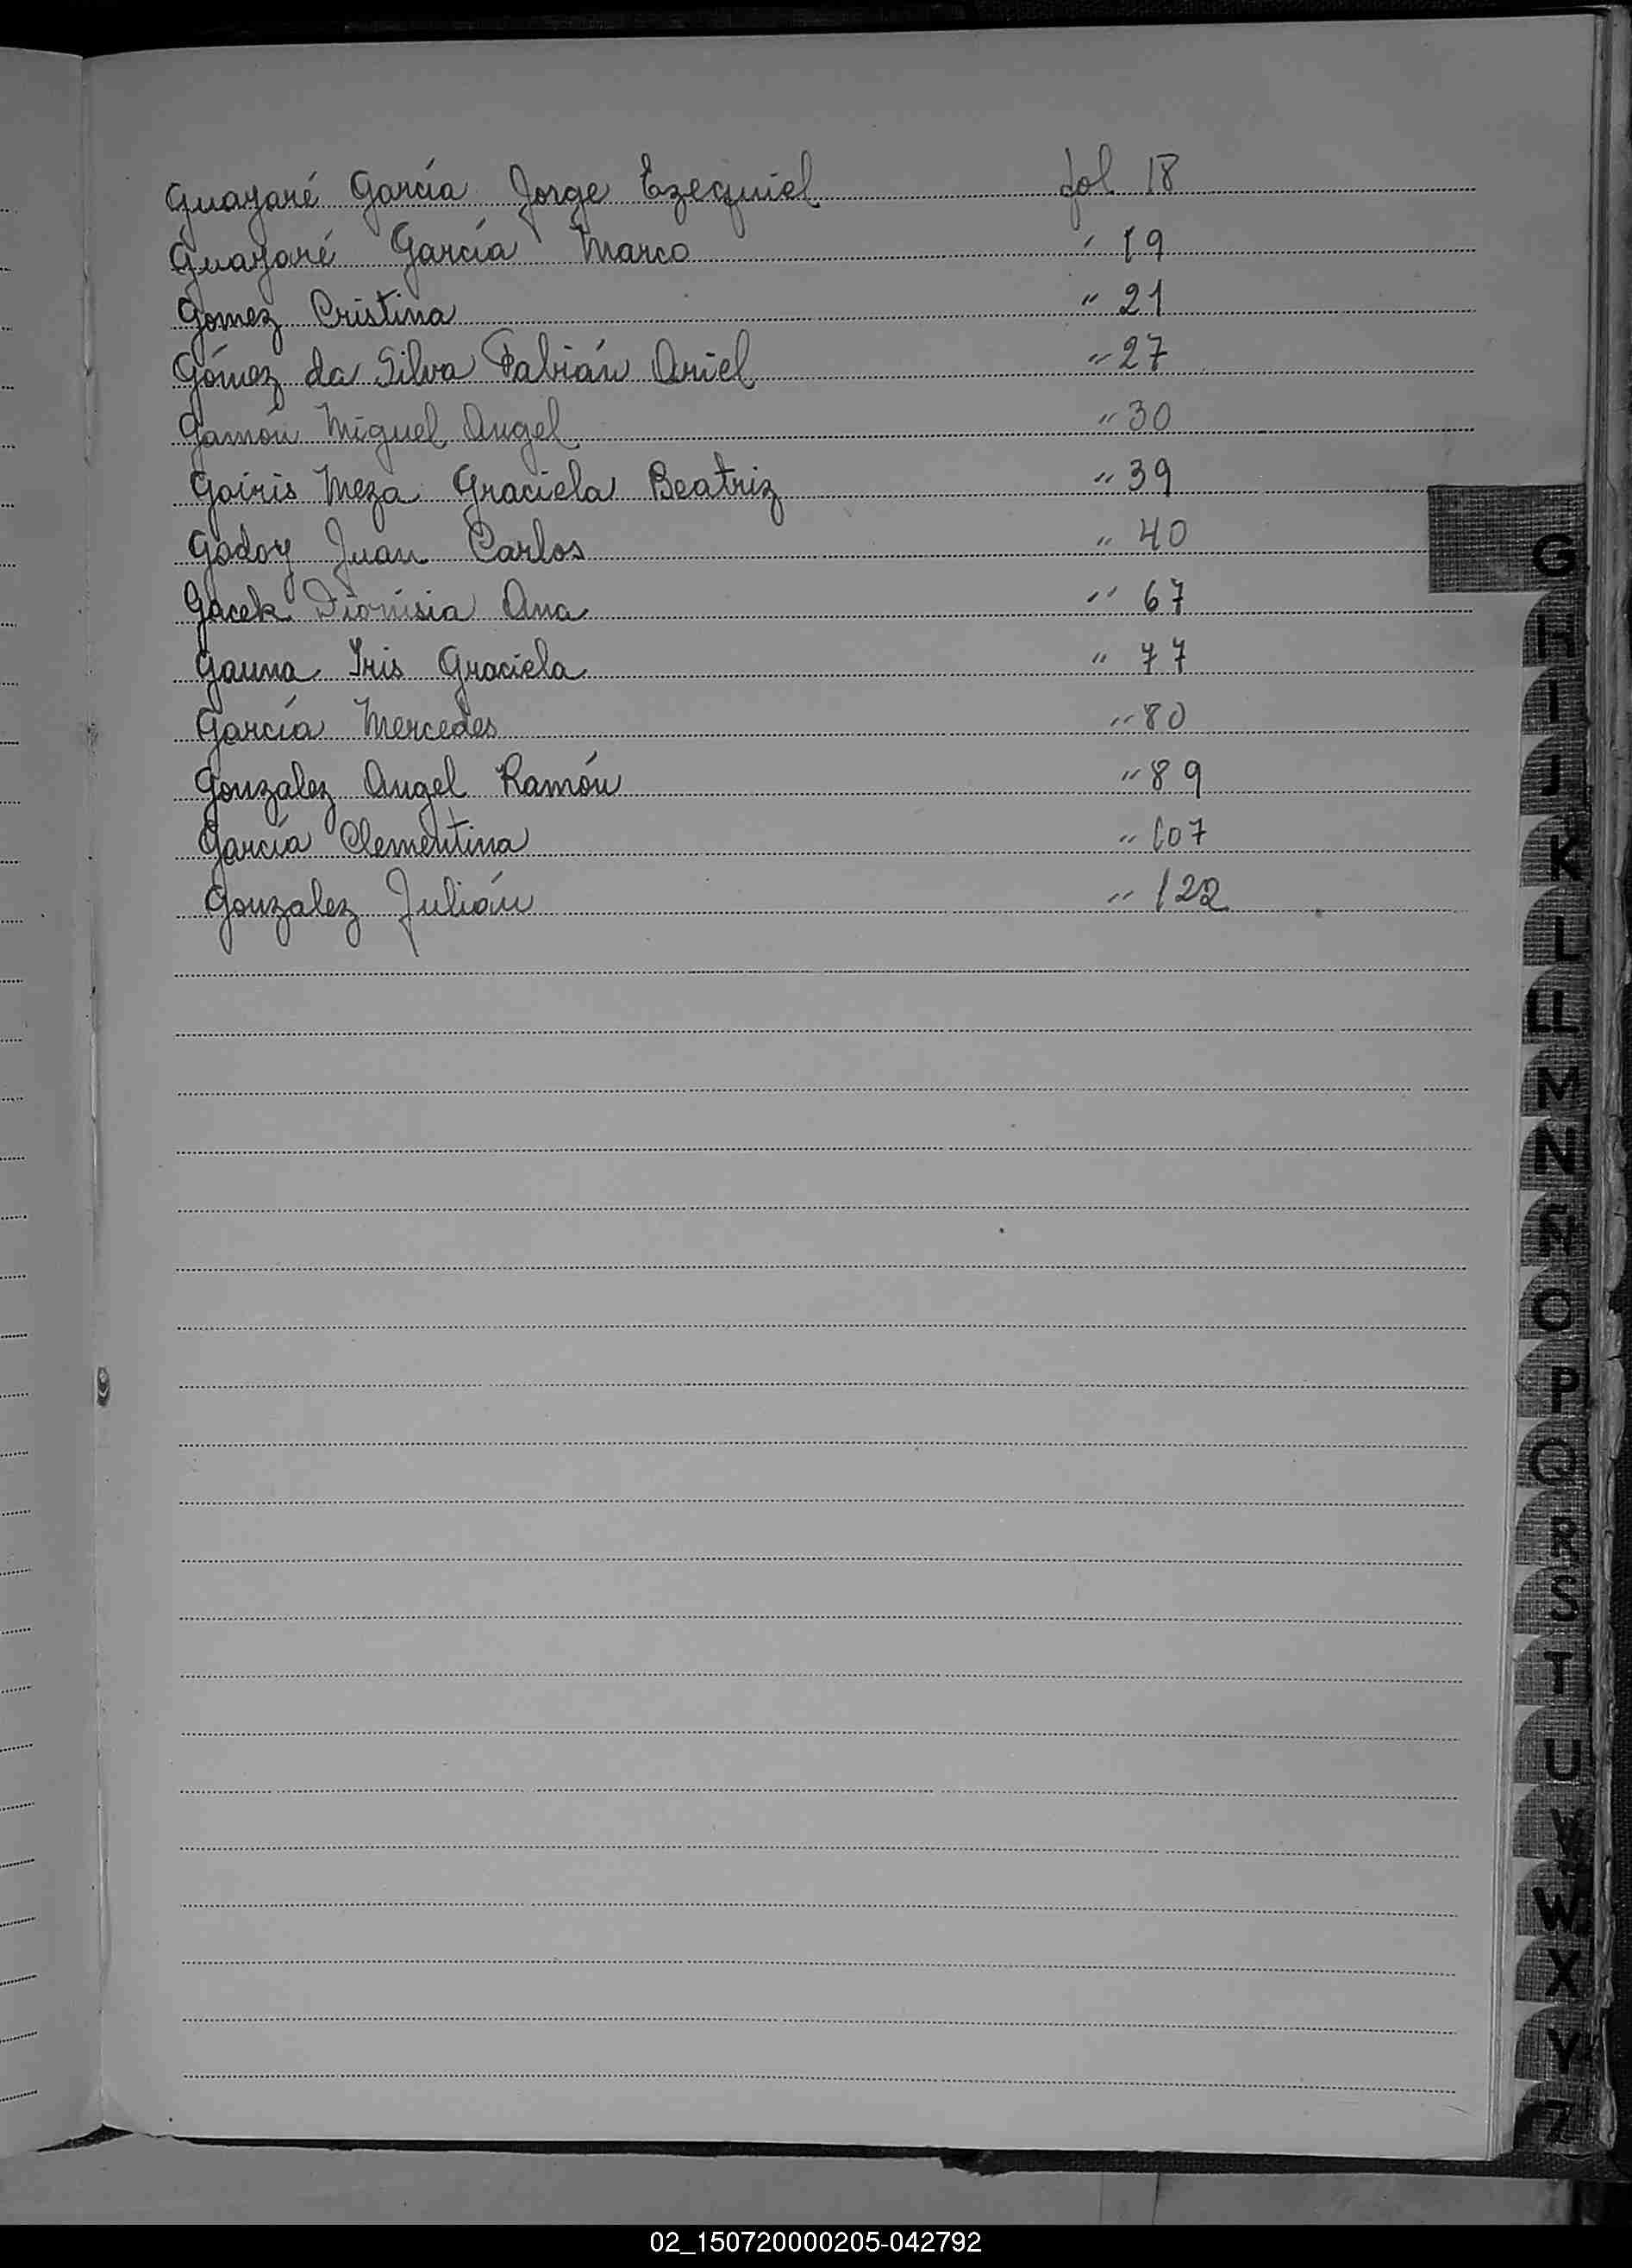 Guayaré García Jorge Ezequiel fol 18
Guayaré García Marco " 19
Gomez Cristina " 21
Gómez da Silva Fabián Ariel " 27
Gamón Miguel Angel " 30
Goiris Meza Graciela Beatriz " 39
Godoy Juan Carlos " 40
Gacek Dionisia Ana " 67
Gauna Iris Graciela " 77
García Mercedes " 80
Gonzalez Angel Ramón " 89
García Clementina " 107
Gonzalez Julián " 122
G
H
I
J
K
L
LL
M
N
Ñ
O
P
Q
R
S
T
U
V
W
X
Y
Z
02_150720000205-042792